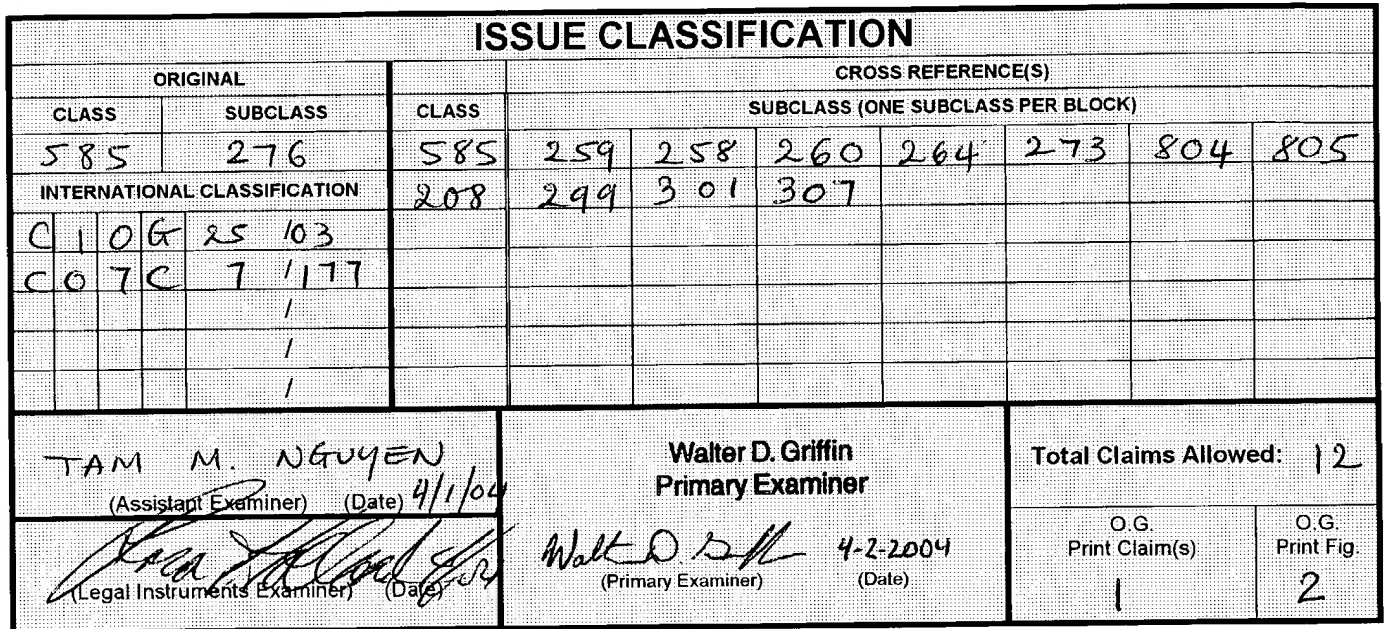 ISSUE CLASSIFICATION
ORIGINAL CROSS REFERENCE(S)
CLASS SUBCLASS CLASS SUBCLASS (ONE SUBCLASS PER BLOCK)
585 276 585 259 258 260 264 273 804 805
INTERNATIONAL CLASSIFICATION 208 299 301 307
C 1 0 G 25 /03
C 0 7 C 7 /177
/
/
/
TAM M. NGUYEN
(Assistant Examiner) (Date) 4/1/04
(Legal Instruments Examiner) (Date)
Walter D. Griffin
Primary Examiner
Walt D. 4-2-2004
(Primary Examiner) (Date)
Total Claims Allowed: 12
O.G.
Print Claim(s)
1
O.G.
Print Fig.
2